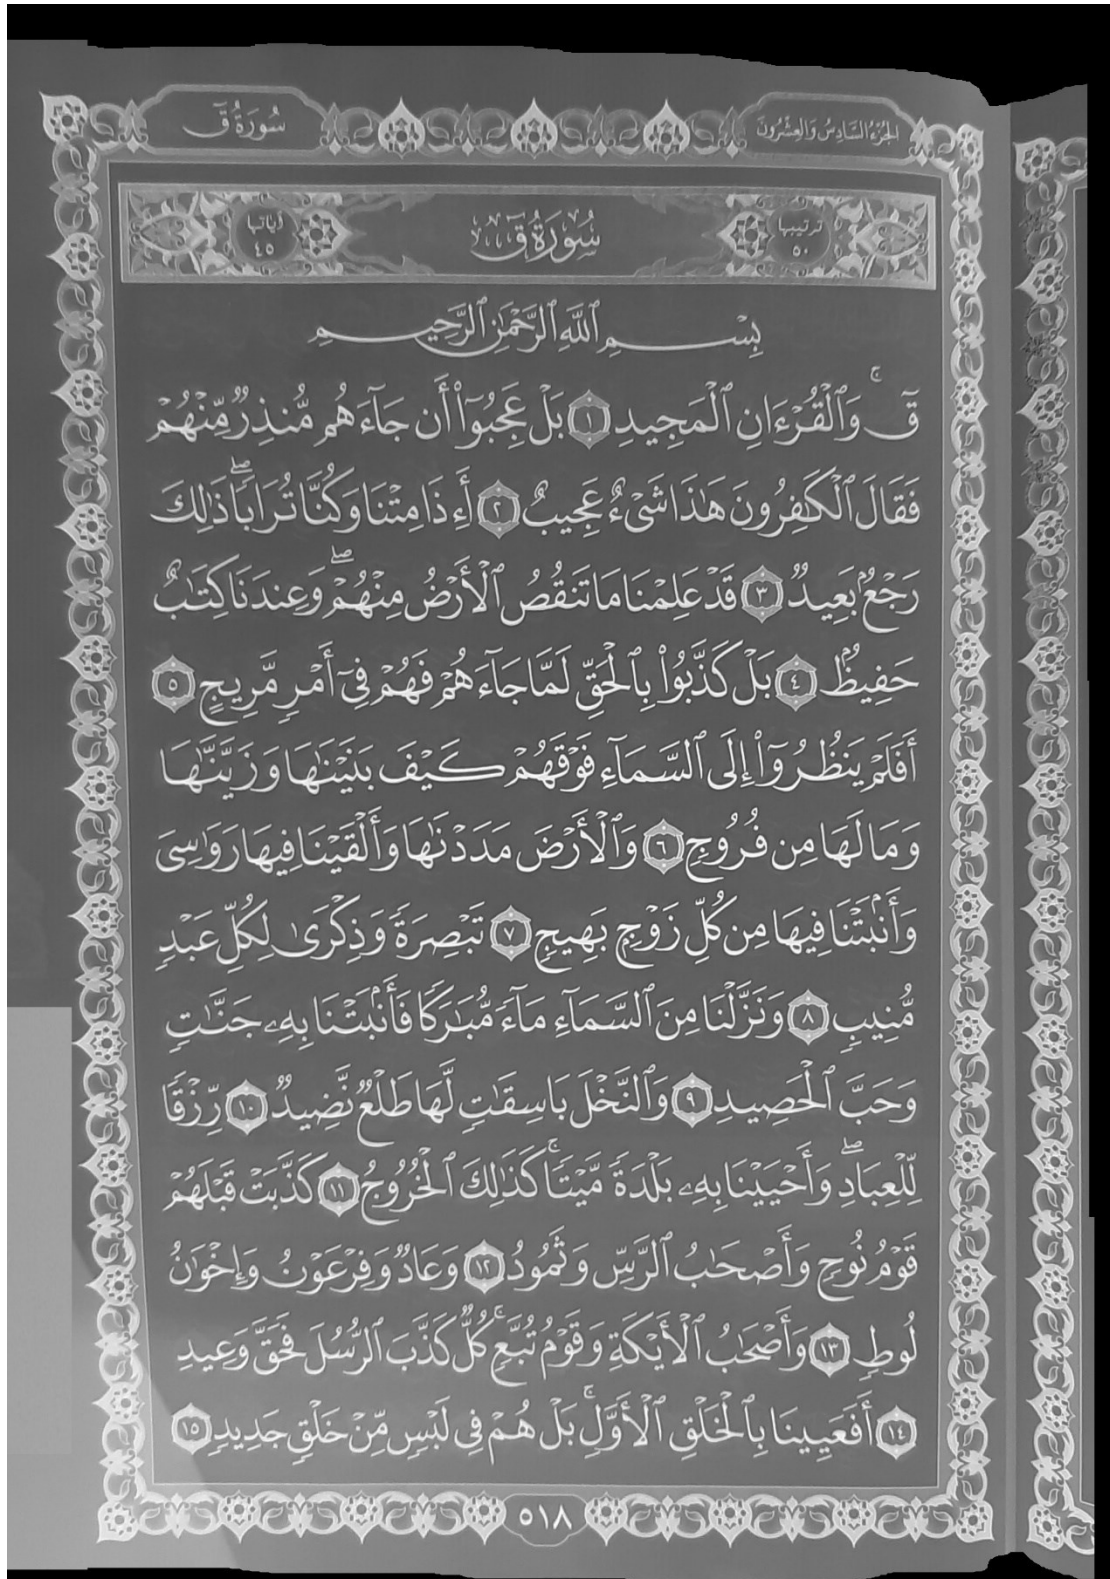 الجزء السادس والعشرون
سُورَةُ قٓ
ترتيبها ٥٠
سُورَةُ قٓ
آياتها ٤٥
بِسْمِ ٱللَّهِ ٱلرَّحْمَٰنِ ٱلرَّحِيمِ
قٓ ۚ وَٱلْقُرْءَانِ ٱلْمَجِيدِ ١ بَلْ عَجِبُوٓا۟ أَن جَآءَهُم مُّنذِرٌ مِّنْهُمْ
فَقَالَ ٱلْكَٰفِرُونَ هَٰذَا شَىْءٌ عَجِيبٌ ٢ أَءِذَا مِتْنَا وَكُنَّا تُرَابًا ۖ ذَٰلِكَ
رَجْعٌۢ بَعِيدٌ ٣ قَدْ عَلِمْنَا مَا تَنقُصُ ٱلْأَرْضُ مِنْهُمْ ۖ وَعِندَنَا كِتَٰبٌ
حَفِيظٌۢ ٤ بَلْ كَذَّبُوا۟ بِٱلْحَقِّ لَمَّا جَآءَهُمْ فَهُمْ فِىٓ أَمْرٍ مَّرِيجٍ ٥
أَفَلَمْ يَنظُرُوٓا۟ إِلَى ٱلسَّمَآءِ فَوْقَهُمْ كَيْفَ بَنَيْنَٰهَا وَزَيَّنَّٰهَا
وَمَا لَهَا مِن فُرُوجٍ ٦ وَٱلْأَرْضَ مَدَدْنَٰهَا وَأَلْقَيْنَا فِيهَا رَوَٰسِىَ
وَأَنۢبَتْنَا فِيهَا مِن كُلِّ زَوْجٍۭ بَهِيجٍ ٧ تَبْصِرَةً وَذِكْرَىٰ لِكُلِّ عَبْدٍ
مُّنِيبٍ ٨ وَنَزَّلْنَا مِنَ ٱلسَّمَآءِ مَآءً مُّبَٰرَكًا فَأَنۢبَتْنَا بِهِۦ جَنَّٰتٍ
وَحَبَّ ٱلْحَصِيدِ ٩ وَٱلنَّخْلَ بَاسِقَٰتٍ لَّهَا طَلْعٌ نَّضِيدٌ ١٠ رِّزْقًا
لِّلْعِبَادِ ۖ وَأَحْيَيْنَا بِهِۦ بَلْدَةً مَّيْتًا ۚ كَذَٰلِكَ ٱلْخُرُوجُ ١١ كَذَّبَتْ قَبْلَهُمْ
قَوْمُ نُوحٍ وَأَصْحَٰبُ ٱلرَّسِّ وَثَمُودُ ١٢ وَعَادٌ وَفِرْعَوْنُ وَإِخْوَٰنُ
لُوطٍ ١٣ وَأَصْحَٰبُ ٱلْأَيْكَةِ وَقَوْمُ تُبَّعٍ ۚ كُلٌّ كَذَّبَ ٱلرُّسُلَ فَحَقَّ وَعِيدِ
١٤ أَفَعَيِينَا بِٱلْخَلْقِ ٱلْأَوَّلِ ۚ بَلْ هُمْ فِى لَبْسٍ مِّنْ خَلْقٍ جَدِيدٍ ١٥
٥١٨